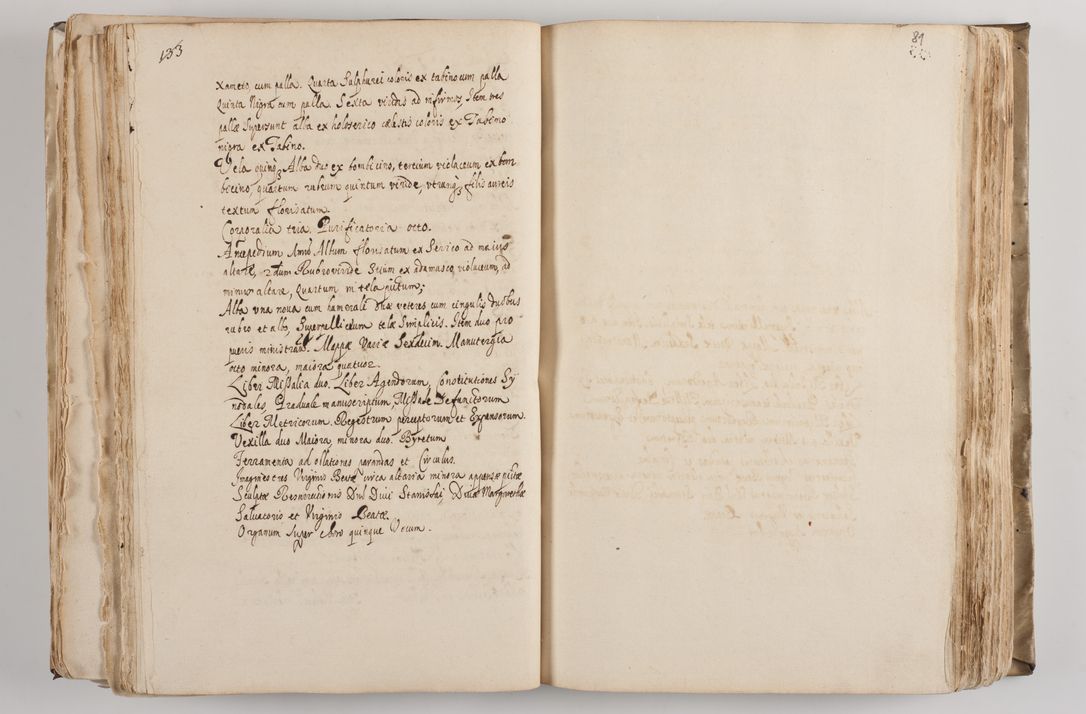 133
Xameto, cum palla. Quarta Sulphurei coloris ex tabino cum palla
Quinta Nigra cum palla. Sexta viridis ad infirmos, Item tres
pallæ Supersunt alba ex holoserico cælestis coloris ex Tabino
nigra ex Tabino.
Vela quinq3 Alba duo ex bombicino, tercium violaceum ex bom
bicino, quartum rubeum quintum viride, utrunq3 filis aureis
textum florisatum.
Corporalia tria. Purificatoria octo.
Antepedium Album florisatum ex Serico ad maius
altare, 2dum Rubro viride 3tium ex adamasco violaceum, ad
minus altare, Quartum in tela pictum;
Alba una noua cum humerali duæ veteres cum cingulis duobus
rubro et albo, Superpelliceum telæ Simplicis. Item duo pro
pueris ministran: Mappæ Variæ Sexdecim. Manutergia
octo minora, maiora quatuor.
Liber Missalia duo. Liber Agendorum, Constitutiones Sy
nodales, Graduale manuscriptum, Missale Defunctorum
Liber Metricorum. Regestrum perceptorum et Expensorum.
Vexilla duo Maiora, minora duo. Byretum
Ferramenta ad ollationes parandas et Circulus.
Imagines tres Virginis Beatæ circa altaria minora appensæ pictæ
Sculptæ Resurrectionis Dni Diui Stanislai, Diuæ Margarethæ
Saluatoris et Virginis Beatæ.
Organum super choro quinque Vocum.
81